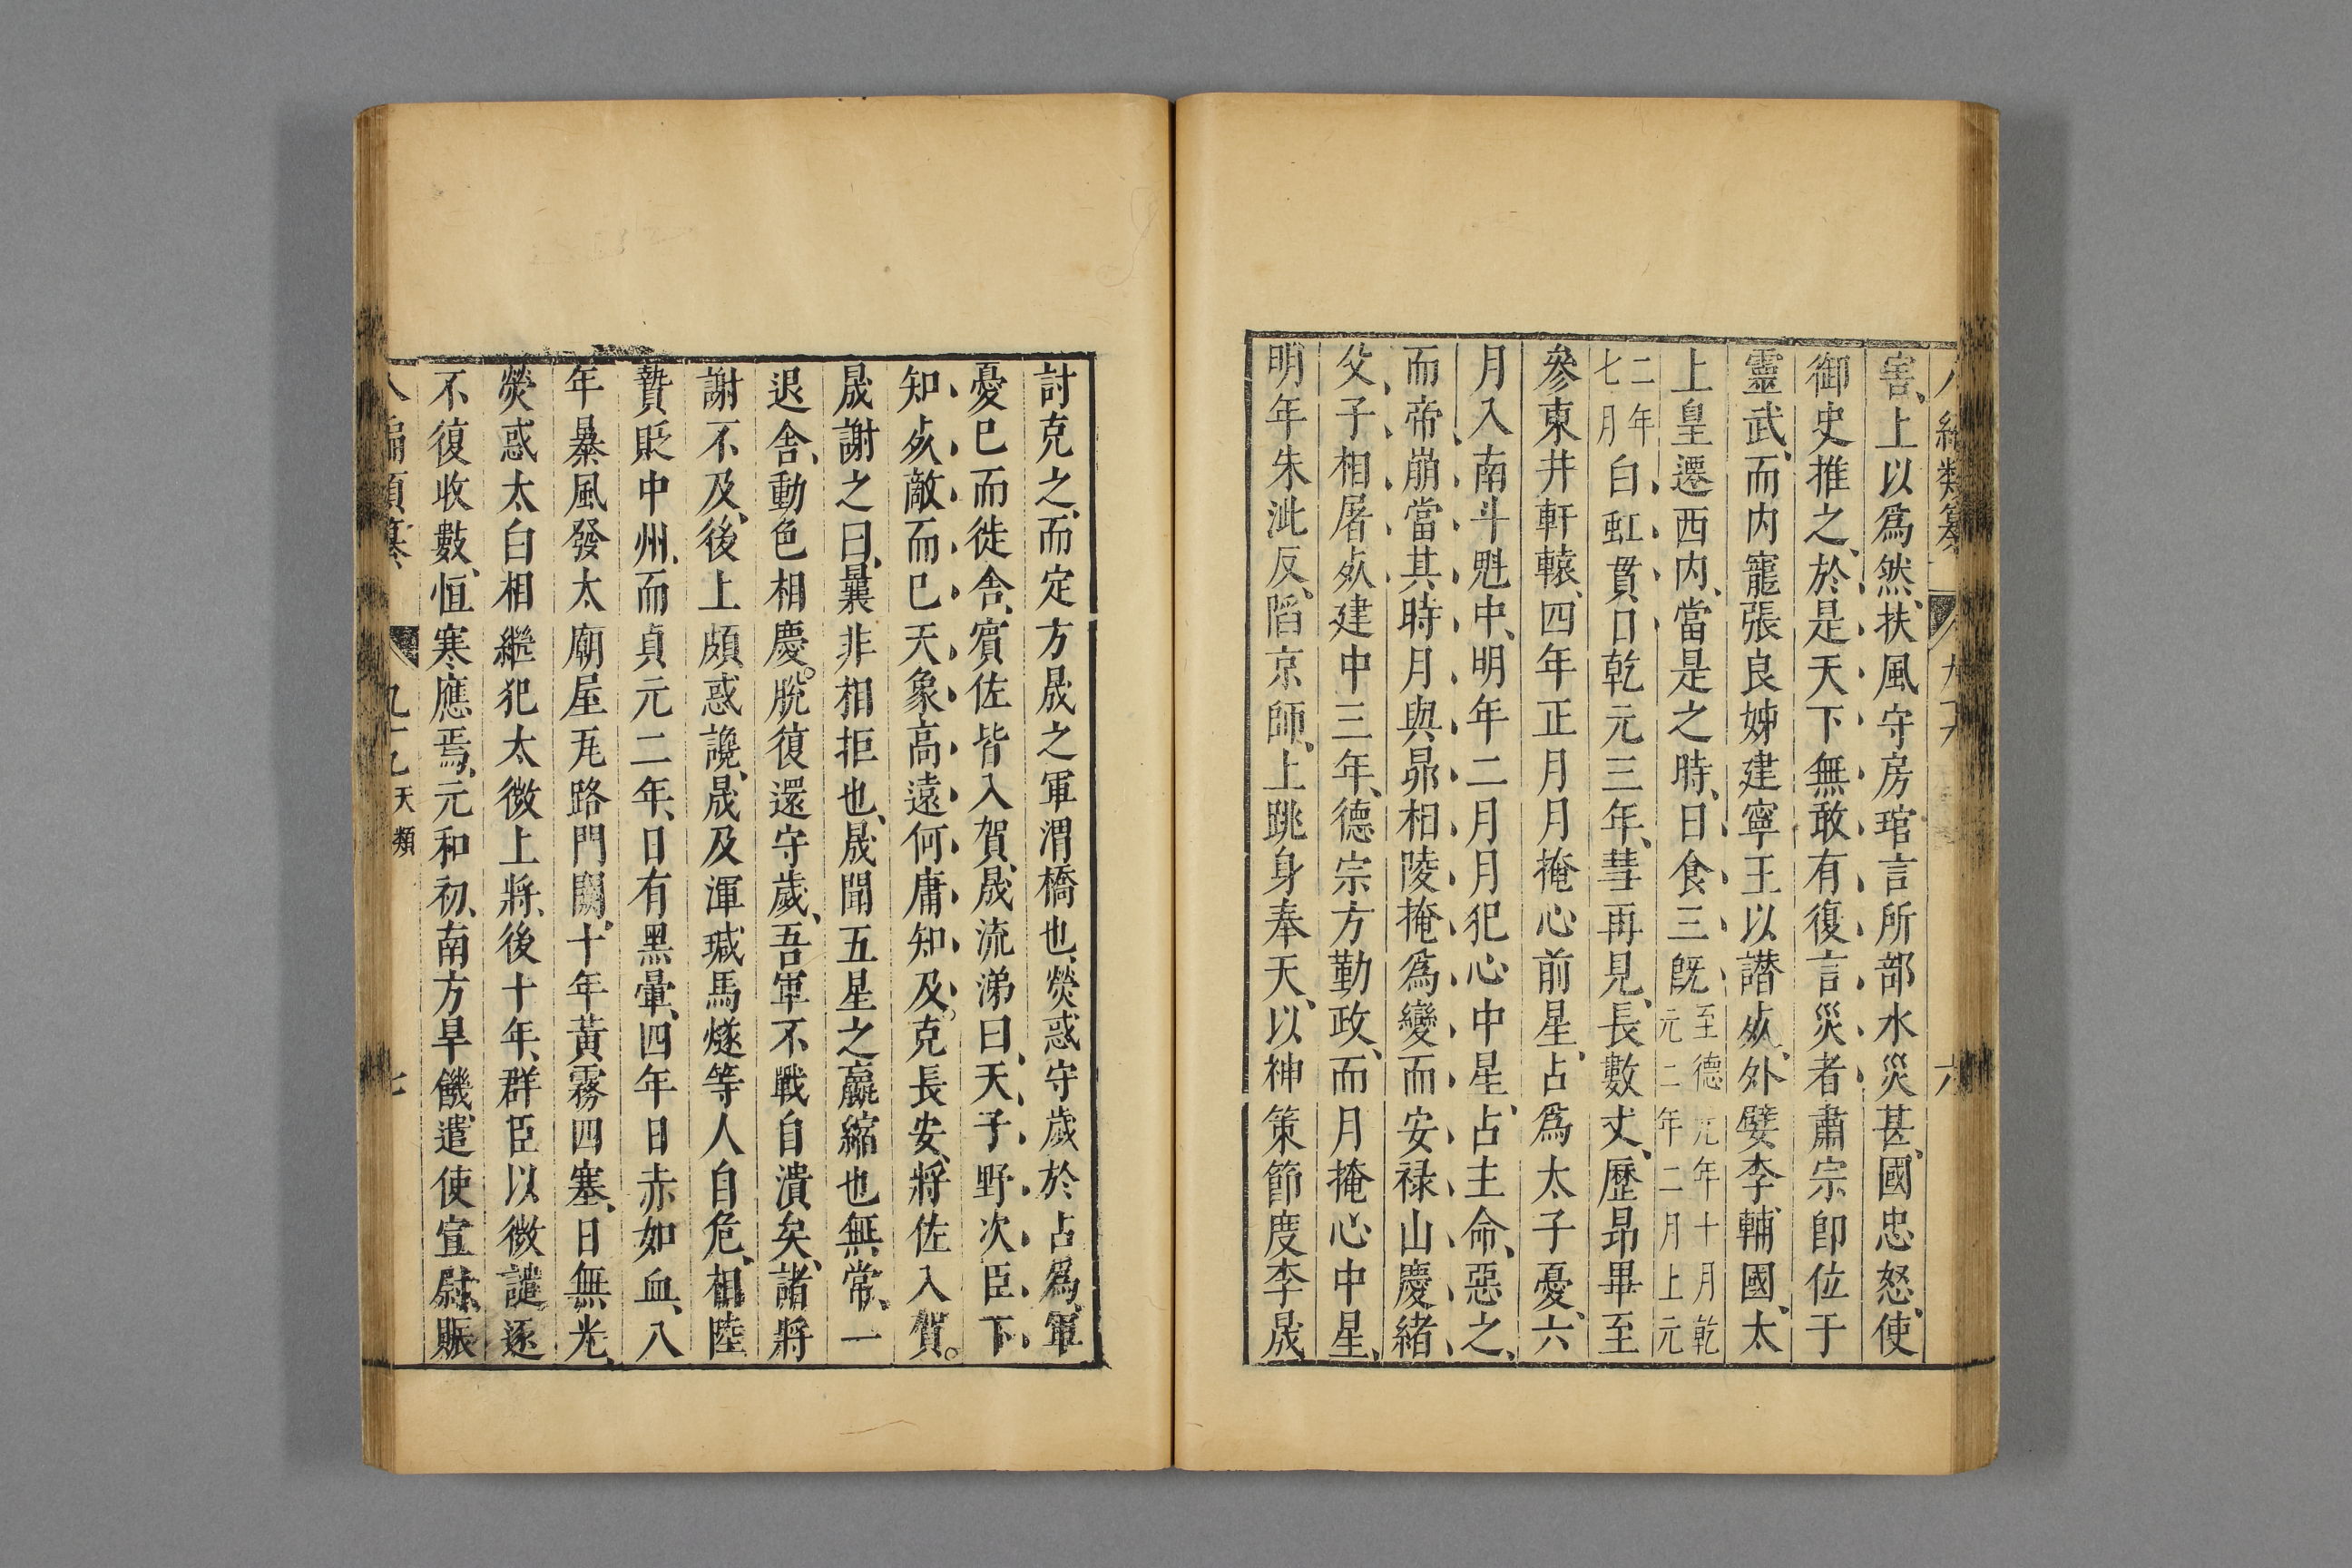 害上以爲然扶風守房琯言所部水災甚國忠怒使
御史推之於是天下無敢有復言災者肅宗卽位于
靈武而内寵張良娣建寧王以譖㱠外嬖李輔國太
上皇遷西内當是之時日食三旣至德元年十月乾元二年二月上元
二年七月白虹貫日乾元三年彗再見長數丈歷昴畢至
參東井軒轅四年正月月掩心前星占爲太子憂六
月入南斗魁中明年二月月犯心中星占主命惡之
而帝崩當其時月與昴相陵掩爲變而安禄山慶緒
父子相屠㱠建中三年德宗方勤政而月掩心中星
明年朱泚反陷京師上跳身奉天以神策節度李晟
討克之而定方晟之軍渭橋也熒惑守歲於占爲軍
憂巳而徙舍賓佐皆入賀晟流涕曰天子野次臣下
知㱠敵而巳天象高遠何庸知及克長安將佐入賀
晟謝之曰曩非相拒也晟聞五星之羸縮也無常一
退舍動色相慶脫復還守歲吾軍不戰自潰矣諸將
謝不及後上頗惑讒晟及渾瑊馬燧等人自危相陸
贄貶中州而貞元二年日有黑暈四年日赤如血八
年暴風發太廟屋瓦路門闕十年黃霧四塞日無光
熒惑太白相繼犯太微上將後十年群臣以微譴逐
不復收敷恒寒應焉元和初南方旱饑遣使宣尉賑
九十九 天類 七